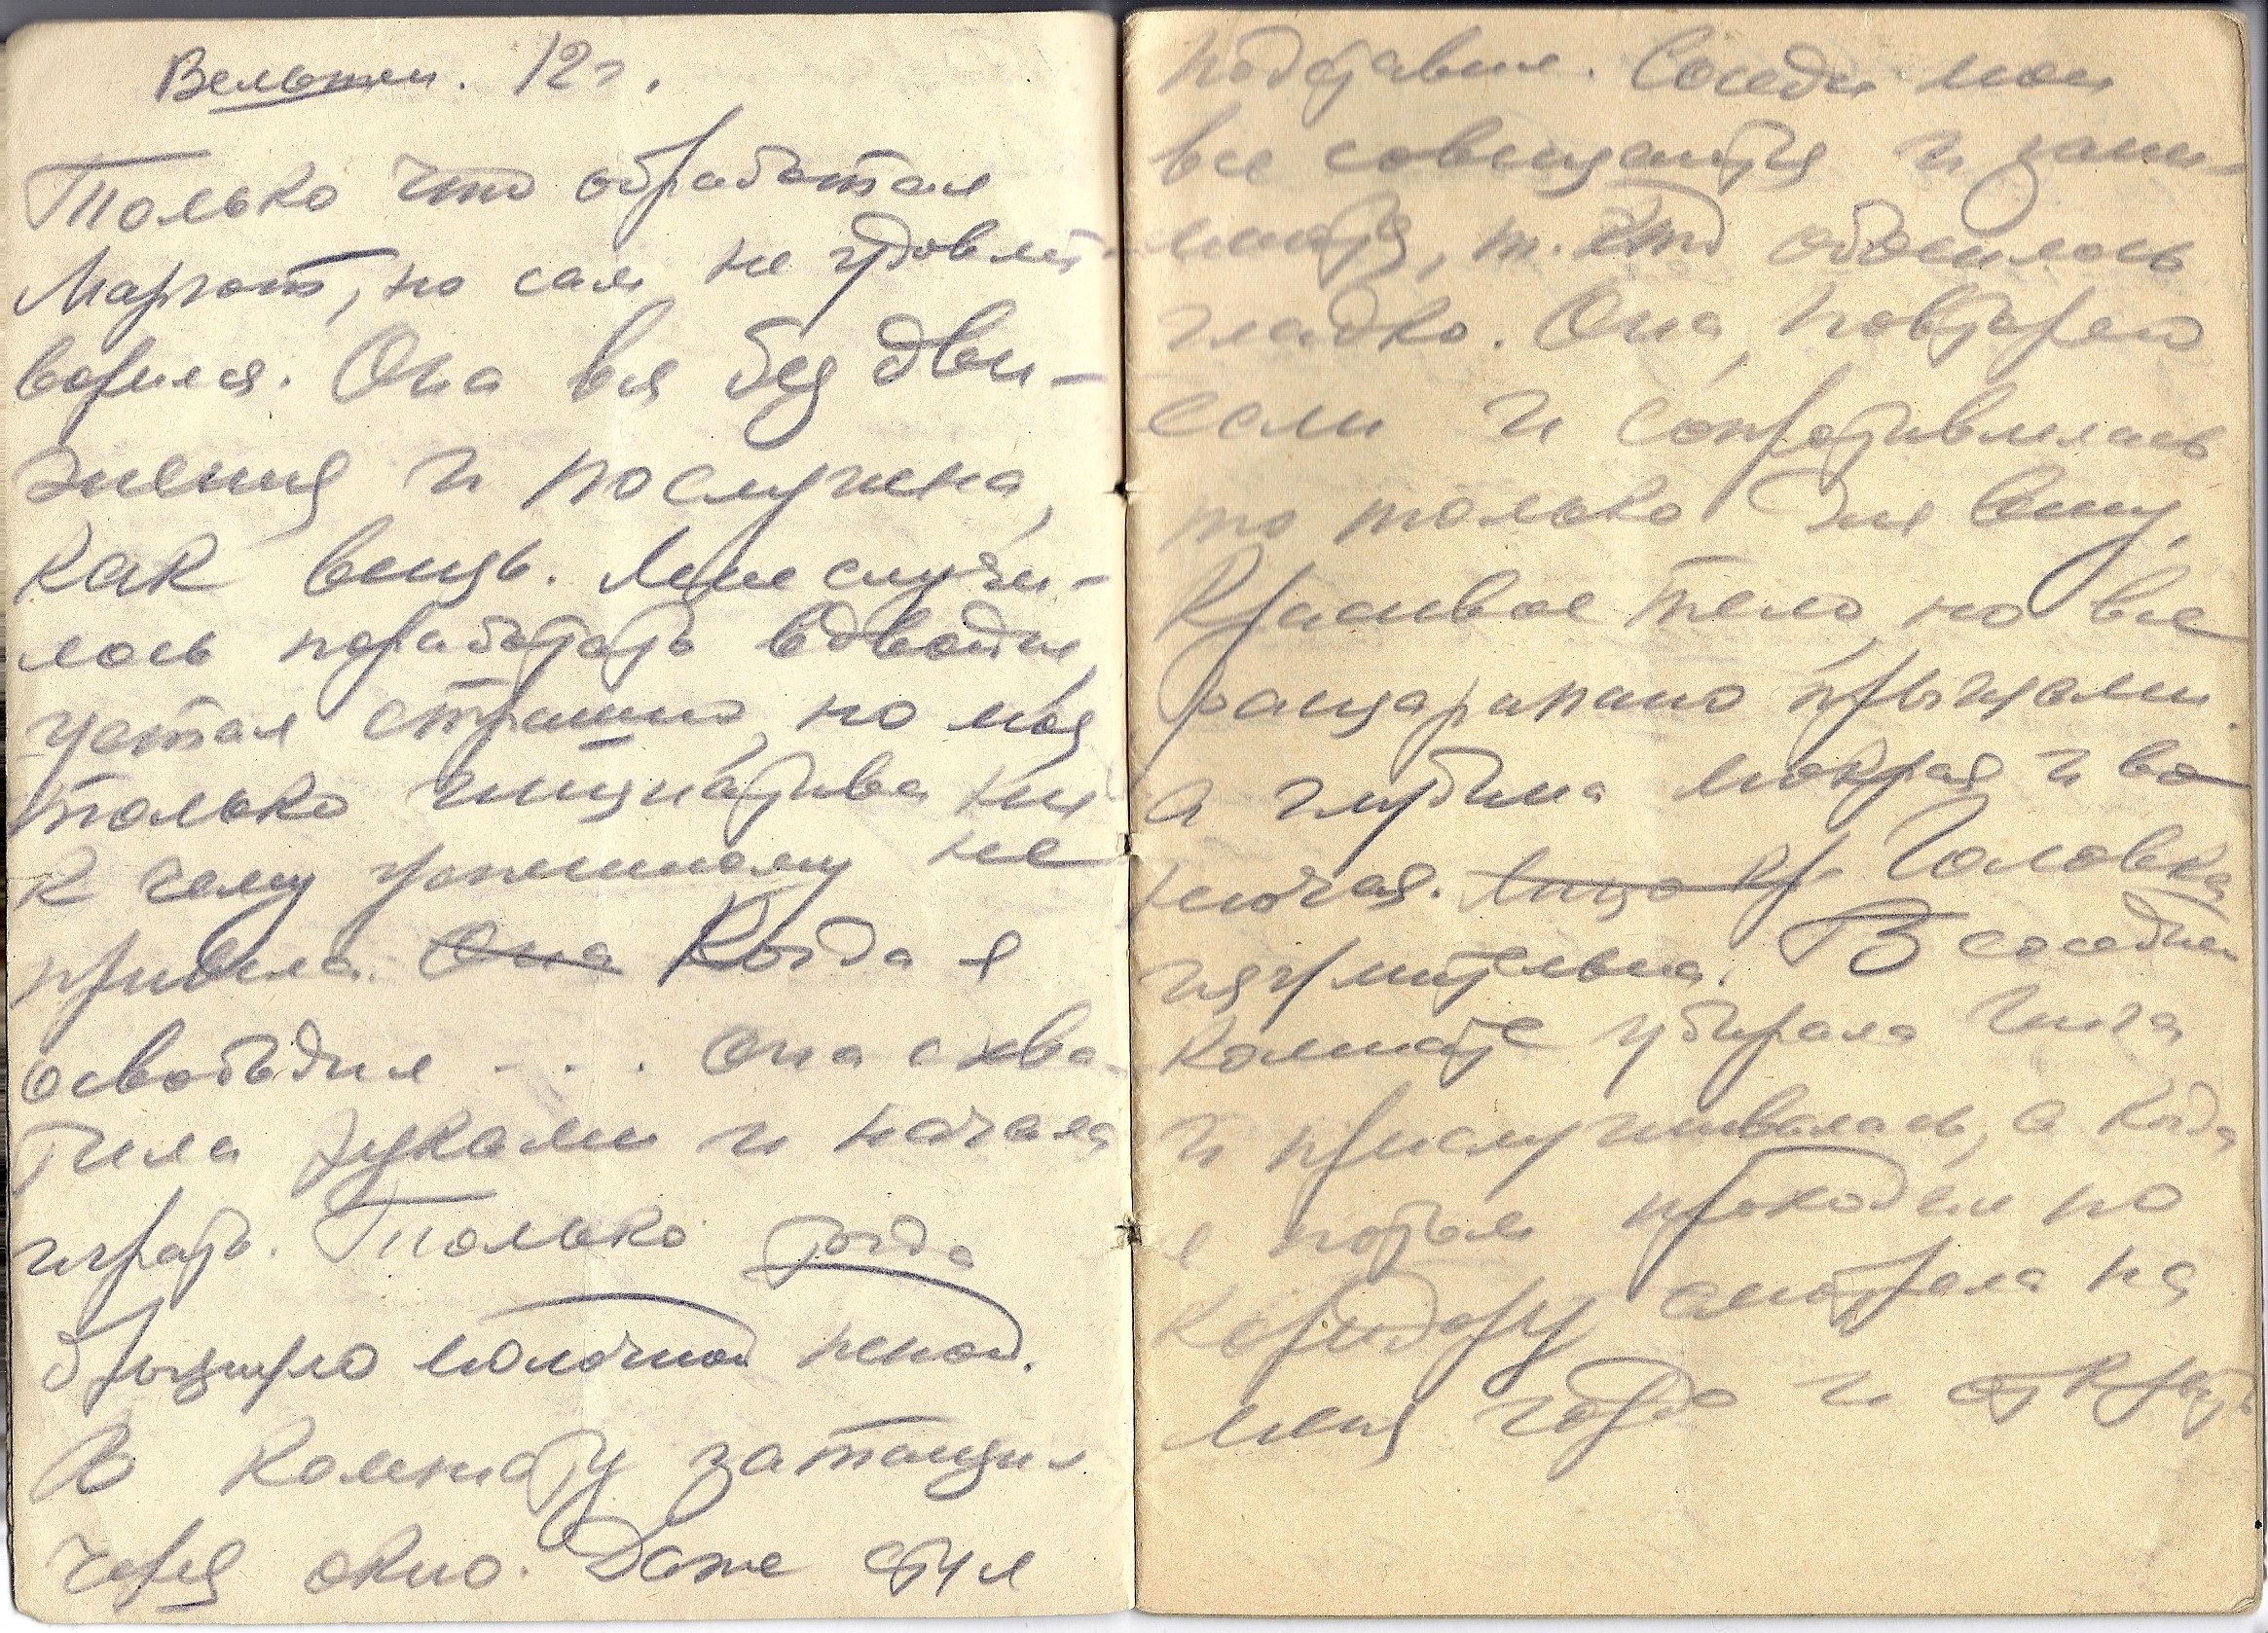 Вельтен. 12 г.
Только что обработал
Маргот, но сам не удовлет-
ворился. Она вся без дви-
жения и послушна,
как вещь. Мне случи-
лось поработать вдвойне,
устал страшно, но моя
только инициатива ни
к чему успешному не
привела. Она Когда я
освободил - . . . Она схва-
тила руками и начала
играть. Только тогда
брызнуло молочной пеной.
В комнату затащил
через окно. Даже стул
подставил. Соседи мои
все совещаются и зани-
маются, т. что обошлось
гладко. Она, повторяю
если и сопротивлялась
то только для виду.
Красивое тело, но все
расцарапано прыщами.
а глубина мокрая и во-
нючая. Лицо кр. Головка
изумительна. В соседней
комнате убирала
и прислушивалась, а когда
я потом проходил по
коридору смотрела на
меня гордо и